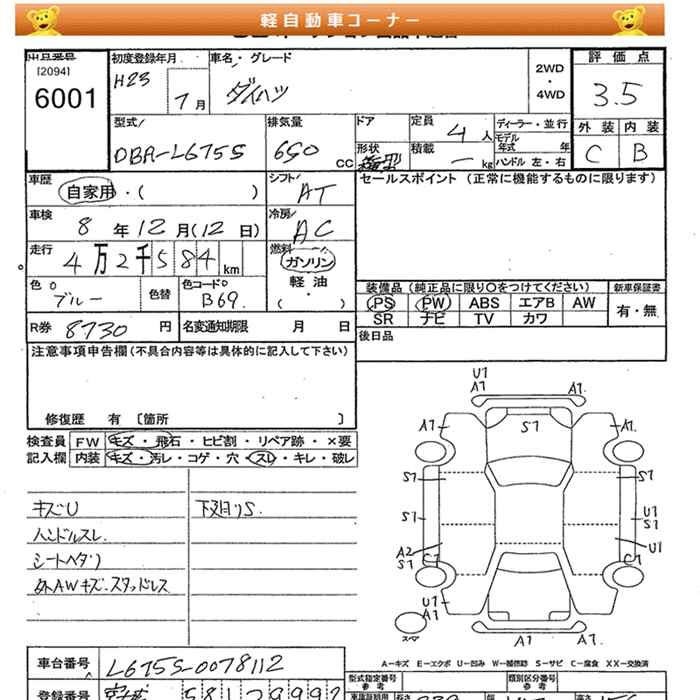 軽自動車コーナー
[2094]
6001
初度登録年月
H23
7月
車名・グレード
ダイハツ
2WD
・
4WD
評価点
3.5
外装 内装
C B
型式
DBA-L675S
排気量
650 CC
ドア
形状
定員 4 人
積載 — kg
ディーラー・並行
モデル
年式 年
ハンドル 左・右
車歴
自家用・( )
シフト
AT
セールスポイント (正常に機能するものに限ります)
車検
8年12月(12日)
冷房
AC
走行
4万2千584km
燃料
ガソリン
軽油
・
( )
色
ブルー
色替
色コードO
B69
装備品(純正品に限り○をつけてください)
新車保証書
PS PW ABS エアB AW
SR ナビ TV カワ
有・無
R券 8730円
名変通知期限 月 日
後日品
注意事項申告欄(不具合内容等は具体的に記入して下さい)
修復歴 有 〔箇所 〕
検査員
記入欄
FW キズ・飛石・ヒビ割・リペア跡・×要
内装 キズ・汚レ・コゲ・穴・スレ・キレ・破レ
キズU
下廻りS.
ハンドルスレ
シートヘタリ
外AWキズ.スタッドレス
U1
A1 A1.
A1 S1 A1.
S1 S1
S1 U1
S1
A2 U1
S1 C1
U1
A1
スペア
A1 A1.
A―キズ E―エクボ U―凹み W―補修跡 S―サビ C―腐食 XX―交換済
車台番号 L675S-0078112
登録番号 581 ろ 9992
型式指定番号
参考
類別区分番号
参考
長さ
幅
高さ